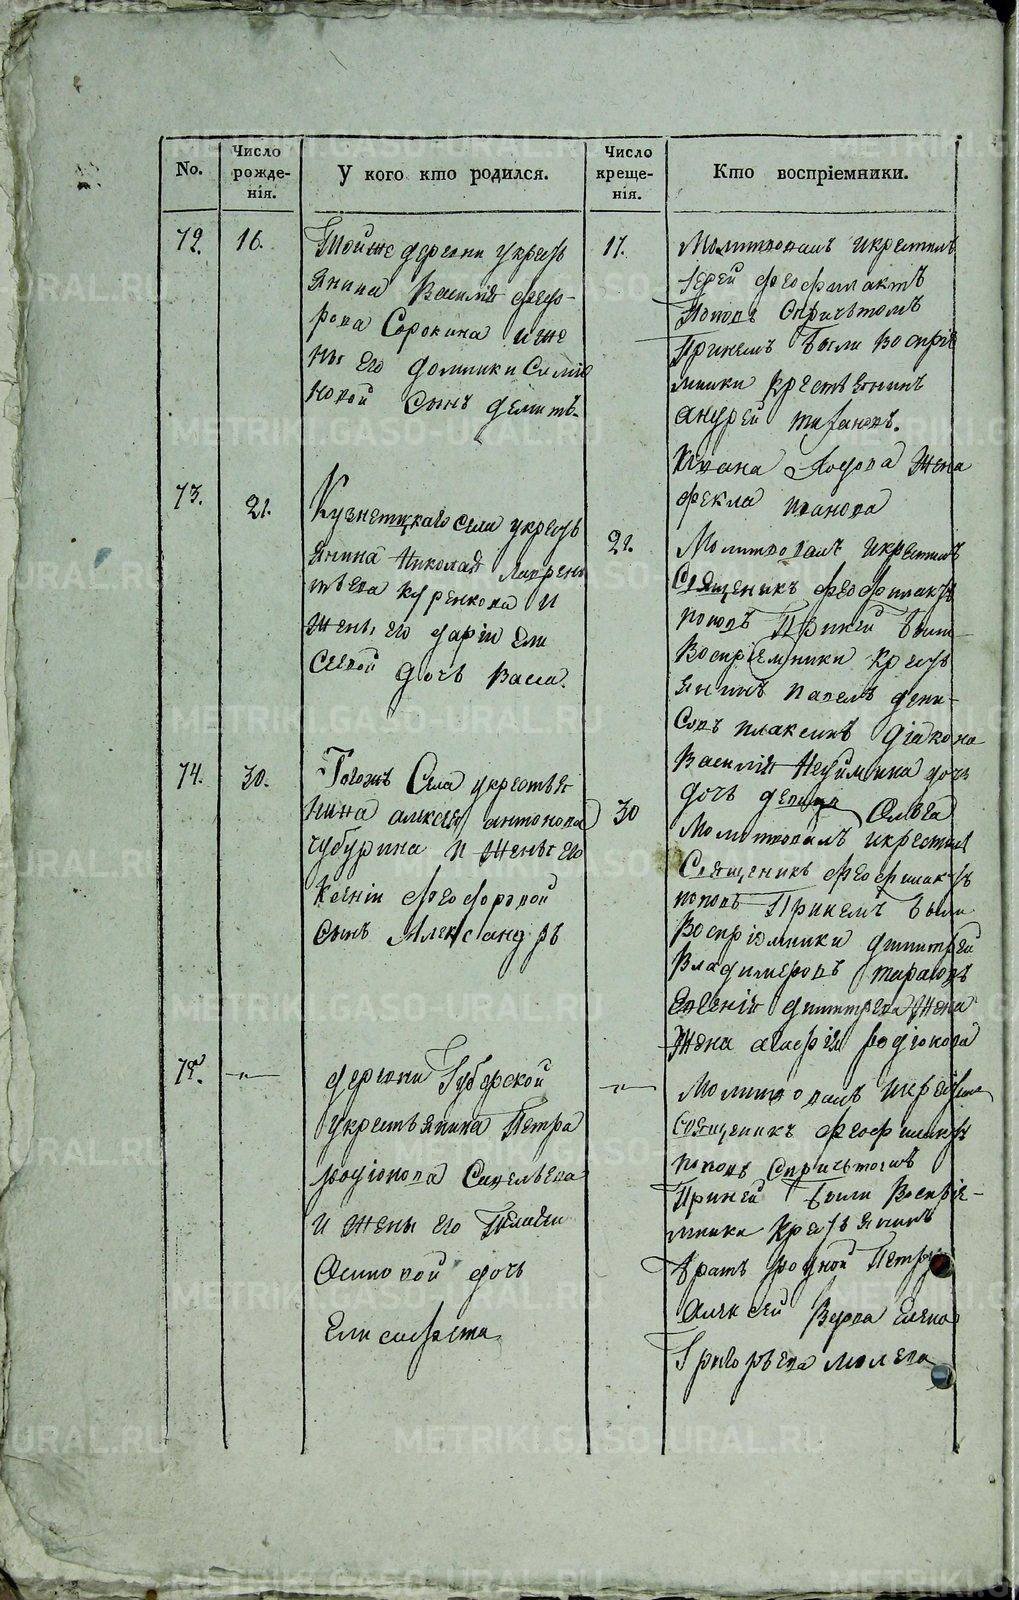 No.
Число рожде-нія.
У кого кто родился.
Число креще-нія.
Кто воспріемники.
72.
16.
Тойже деревни укресть
янина Василія Федо-
рова Сорокина и же
ны его домники Симио
новой сынъ
17.
Молитвовалъ икрестилъ
Іерей Феофилактъ
Поповъ Спричьтомъ
Принемъ были Воспріе
мники крестьянинъ
андрей
Ивана жена
фекла иванова
73.
21.
Кузнетцкаго села укресть
янина Николая Лаврен
тьева куренкова и
жены его даріи Ели
сеевой дочь Васса.
21.
Молитвовалъ икрестилъ
Священикъ Феофилактъ
поповъ Приней были
Воспріемники кресть
янинъ павелъ дени-
совъ плаксинъ діакона
Василія дочь
дочь девица Ольга
74.
30.
Тогожъ Села укрестья
нина алексея антонова
чубурина и жены его
Ксеніи Феодоровой
сынъ Александръ
30
Молитвовалъ икрестилъ
Священикъ Феофилактъ
поповъ Принемъ были
Воспріемники димитрей
Владимеровъ тарасовъ
Евгенія димитрева жена
жена агафія родіонова
75.
деревни Губерской
укрестьянина Петра
родіонова Савельева
и жены его Пелагеи
Осиповой дочь
Елисавета
Молитвовалъ икрестилъ
священикъ Феофилактъ
поповъ Спричьтомъ
Приней были Воспріе-
мники Крестьянинъ
братъ родной Петру
Алексей Вдова Елена
Григорьева
METRIKI.GASO-URAL.RU